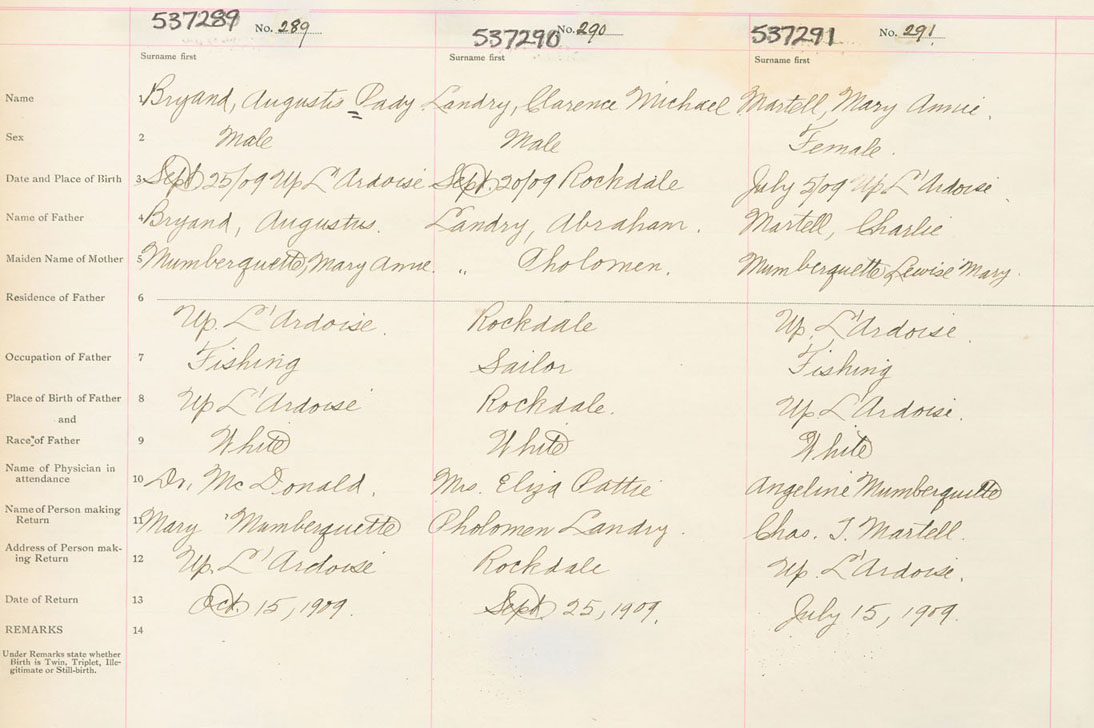 537289 No. 289 537290 No. 290 537291 No. 291
Surname first Surname first Surname first
Name 1 Bryand, Augustis Pady Landry, Clarence Michael Martell, Mary Annie.
Sex 2 Male Male Female.
Date and Place of Birth 3 Sept 25/09 Up L'Ardoise Sept. 20/09 Rockdale July 5/09 Up L'Ardoise
Name of Father 4 Bryand, Augustus. Landry, Abraham. Martell, Charlie
Maiden Name of Mother 5 Mumberquette, Mary Annie. " Pholomen. Mumberquette Lewise Mary.
Residence of Father 6
Up. L'Ardoise. Rockdale Up. L'Ardoise.
Occupation of Father 7 Fishing Sailor Fishing
Place of Birth of Father 8 Up L'Ardoise Rockdale. Up L'Ardoise.
and
Race of Father 9 White White White
Name of Physician in
attendance 10 Dr. McDonald. Mrs. Eliza Pottie Angeline Mumberquette
Name of Person making
Return 11 Mary Mumberquette Pholomen Landry. Chas. T. Martell.
Address of Person mak-
ing Return 12 Up. L'Ardoise Rockdale Up. L'Ardoise.
Date of Return 13 Oct. 15, 1909. Sept. 25, 1909. July 15, 1909.
REMARKS 14
Under Remarks state whether
Birth is Twin, Triplet, Ille-
gitimate or Still-birth.